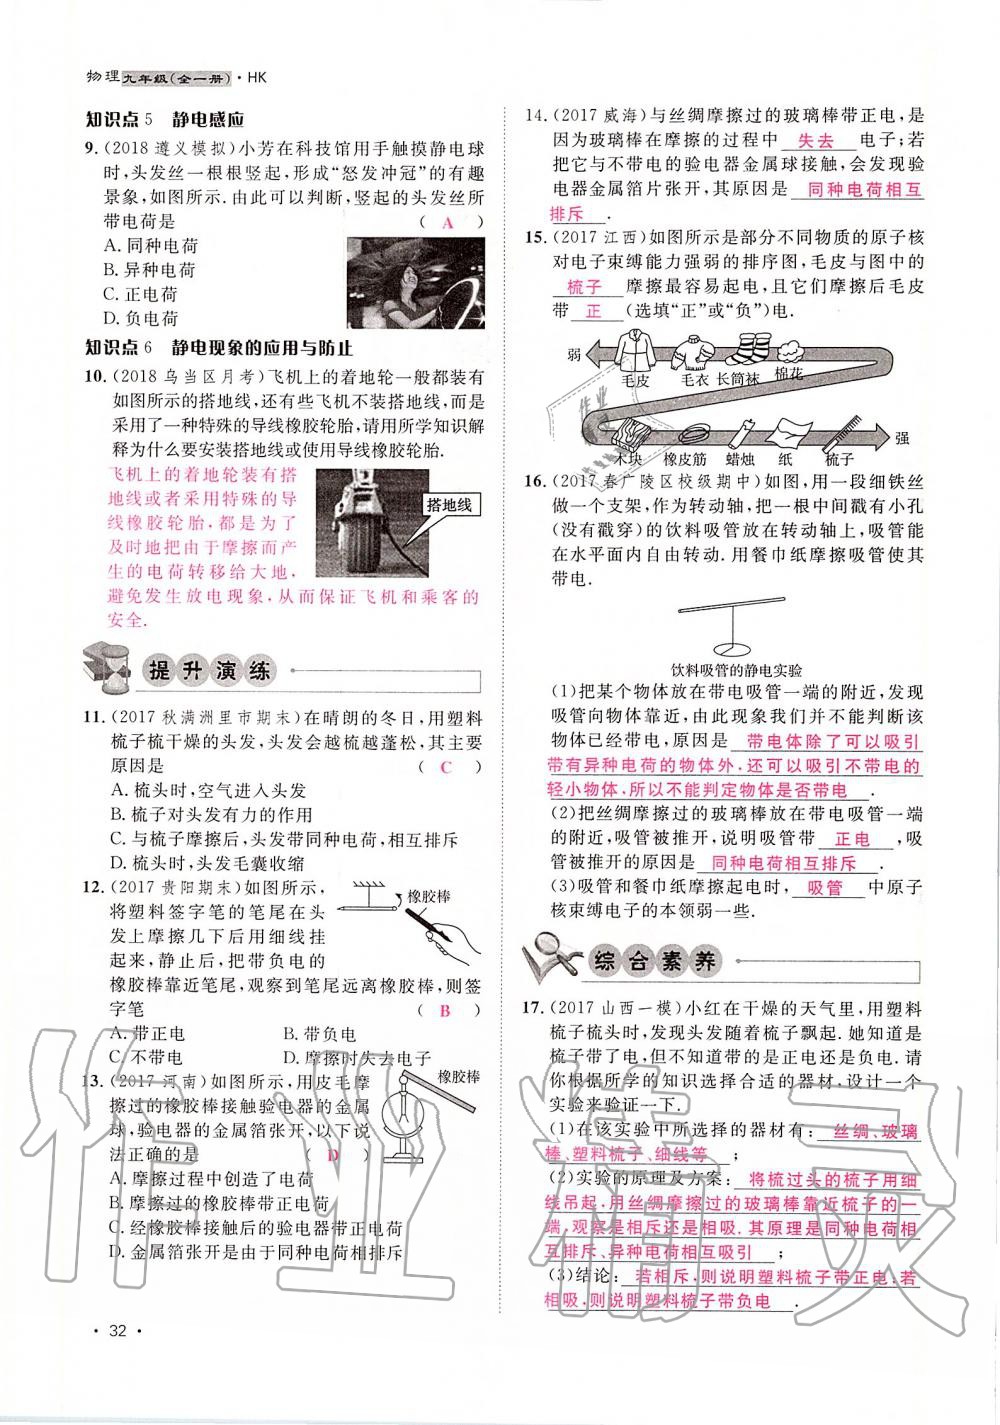 物理九年级(全一册)·HK
知识点 5 静电感应
9. (2018 遵义模拟)小芳在科技馆用手触摸静电球
时,头发丝一根根竖起,形成“怒发冲冠”的有趣
景象,如图所示.由此可以判断,竖起的头发丝所
带电荷是 ( A )
A. 同种电荷
B. 异种电荷
C. 正电荷
D. 负电荷
知识点 6 静电现象的应用与防止
10. (2018 乌当区月考)飞机上的着地轮一般都装有
如图所示的搭地线,还有些飞机不装搭地线,而是
采用了一种特殊的导线橡胶轮胎,请用所学知识解
释为什么要安装搭地线或使用导线橡胶轮胎.
飞机上的着地轮装有搭
地线或者采用特殊的导
线橡胶轮胎,都是为了
及时地把由于摩擦而产
生的电荷转移给大地,
避免发生放电现象,从而保证飞机和乘客的
安全.
搭地线
提升演练
11. (2017 秋满洲里市期末)在晴朗的冬日,用塑料
梳子梳干燥的头发,头发会越梳越蓬松,其主要
原因是 ( C )
A. 梳头时,空气进入头发
B. 梳子对头发有力的作用
C. 与梳子摩擦后,头发带同种电荷,相互排斥
D. 梳头时,头发毛囊收缩
12. (2017 贵阳期末)如图所示,
将塑料签字笔的笔尾在头
发上摩擦几下后用细线挂
起来,静止后,把带负电的
橡胶棒靠近笔尾,观察到笔尾远离橡胶棒,则签
字笔 ( B )
橡胶棒
A. 带正电 B. 带负电
C. 不带电 D. 摩擦时失去电子
13. (2017 河南)如图所示,用皮毛摩
擦过的橡胶棒接触验电器的金属
球,验电器的金属箔张开,以下说
法正确的是 ( D )
橡胶棒
A. 摩擦过程中创造了电荷
B. 摩擦过的橡胶棒带正电荷
C. 经橡胶棒接触后的验电器带正电荷
D. 金属箔张开是由于同种电荷相排斥
· 32 ·
14. (2017 威海)与丝绸摩擦过的玻璃棒带正电,是
因为玻璃棒在摩擦的过程中 失去 电子;若
把它与不带电的验电器金属球接触,会发现验
电器金属箔片张开,其原因是 同种电荷相互
排斥 .
15. (2017 江西)如图所示是部分不同物质的原子核
对电子束缚能力强弱的排序图,毛皮与图中的
梳子 摩擦最容易起电,且它们摩擦后毛皮
带 正 (选填“正”或“负”)电.
弱
毛皮 毛衣 长筒袜 棉花
强
木块 橡皮筋 蜡烛 纸 梳子
16. (2017 春广陵区校级期中)如图,用一段细铁丝
做一个支架,作为转动轴,把一根中间戳有小孔
(没有戳穿)的饮料吸管放在转动轴上,吸管能
在水平面内自由转动.用餐巾纸摩擦吸管使其
带电.
饮料吸管的静电实验
(1)把某个物体放在带电吸管一端的附近,发现
吸管向物体靠近,由此现象我们并不能判断该
物体已经带电,原因是 带电体除了可以吸引
带有异种电荷的物体外,还可以吸引不带电的
轻小物体,所以不能判定物体是否带电 .
(2)把丝绸摩擦过的玻璃棒放在带电吸管一端
的附近,吸管被推开,说明吸管带 正电 ,吸
管被推开的原因是 同种电荷相互排斥 .
(3)吸管和餐巾纸摩擦起电时, 吸管 中原子
核束缚电子的本领弱一些.
综合素养
17. (2017 山西一模)小红在干燥的天气里,用塑料
梳子梳头时,发现头发随着梳子飘起.她知道是
梳子带了电,但不知道带的是正电还是负电.请
你根据所学的知识选择合适的器材,设计一个
实验来验证一下.
(1)在该实验中所选择的器材有: 丝绸、玻璃
棒、塑料梳子、细线等 ;
(2)实验的原理及方案: 将梳过头的梳子用细
线吊起,用丝绸摩擦过的玻璃棒靠近梳子的一
端,观察是相斥还是相吸.其原理是同种电荷相
互排斥、异种电荷相互吸引 ;
(3)结论: 若相斥,则说明塑料梳子带正电;若
相吸,则说明塑料梳子带负电 .
作业精灵